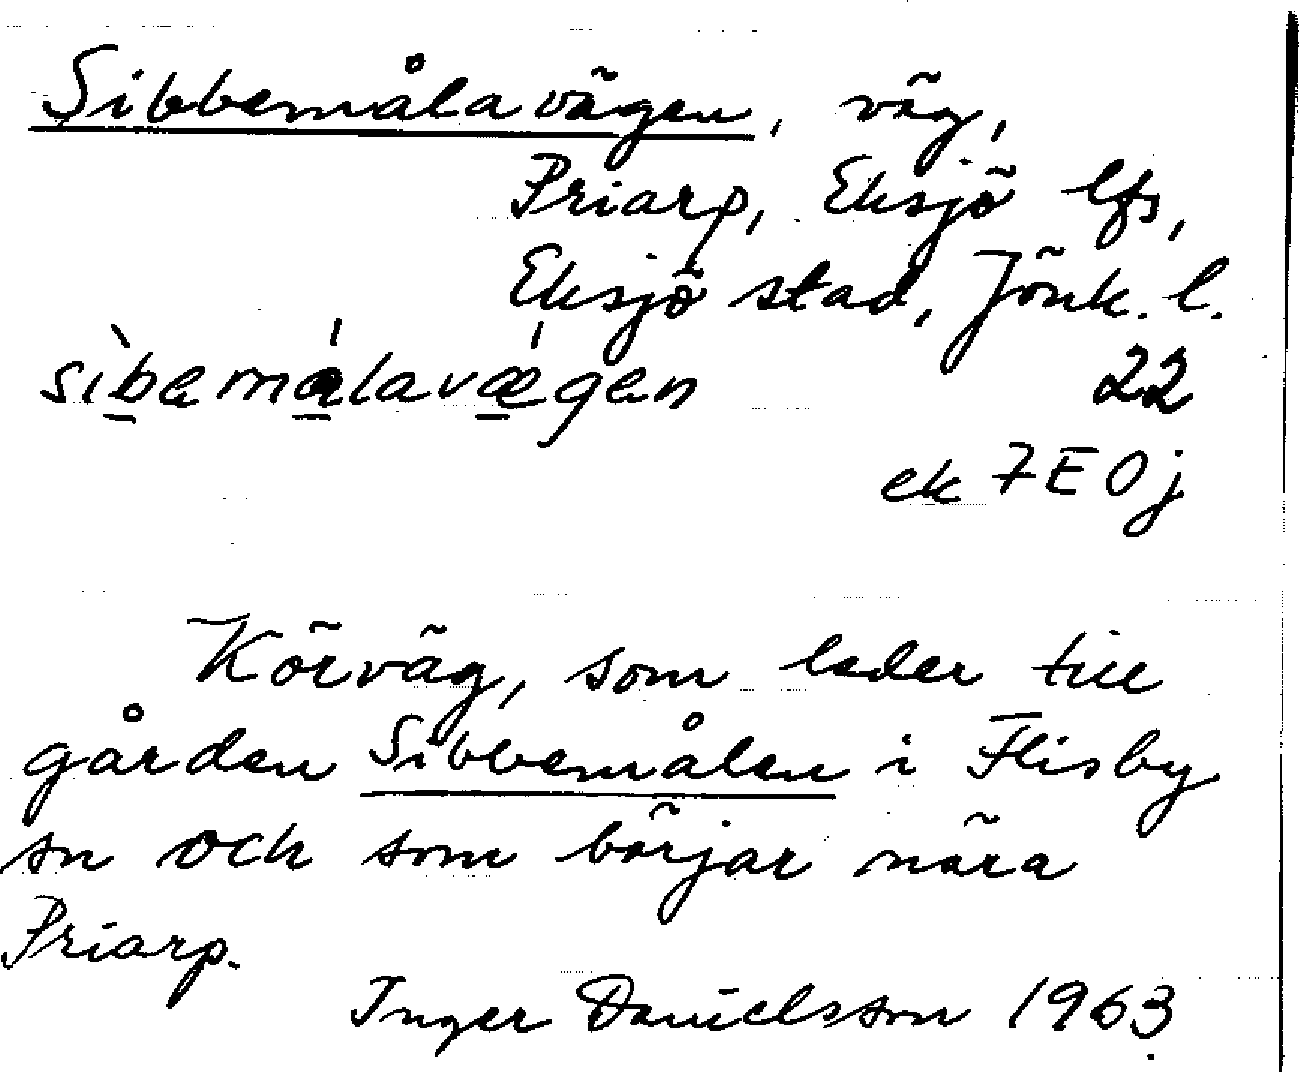 Sibbemålavägen, väg,
Priarp, Eksjö lfs,
Eksjö stad, Jönk. l.
sìbemálavǽgen 22
ek 7E0j
Körväg, som leder till
gården Sibbemålen i Flisby
sn och som börjar nära
Priarp.
Inger Danielsson 1963